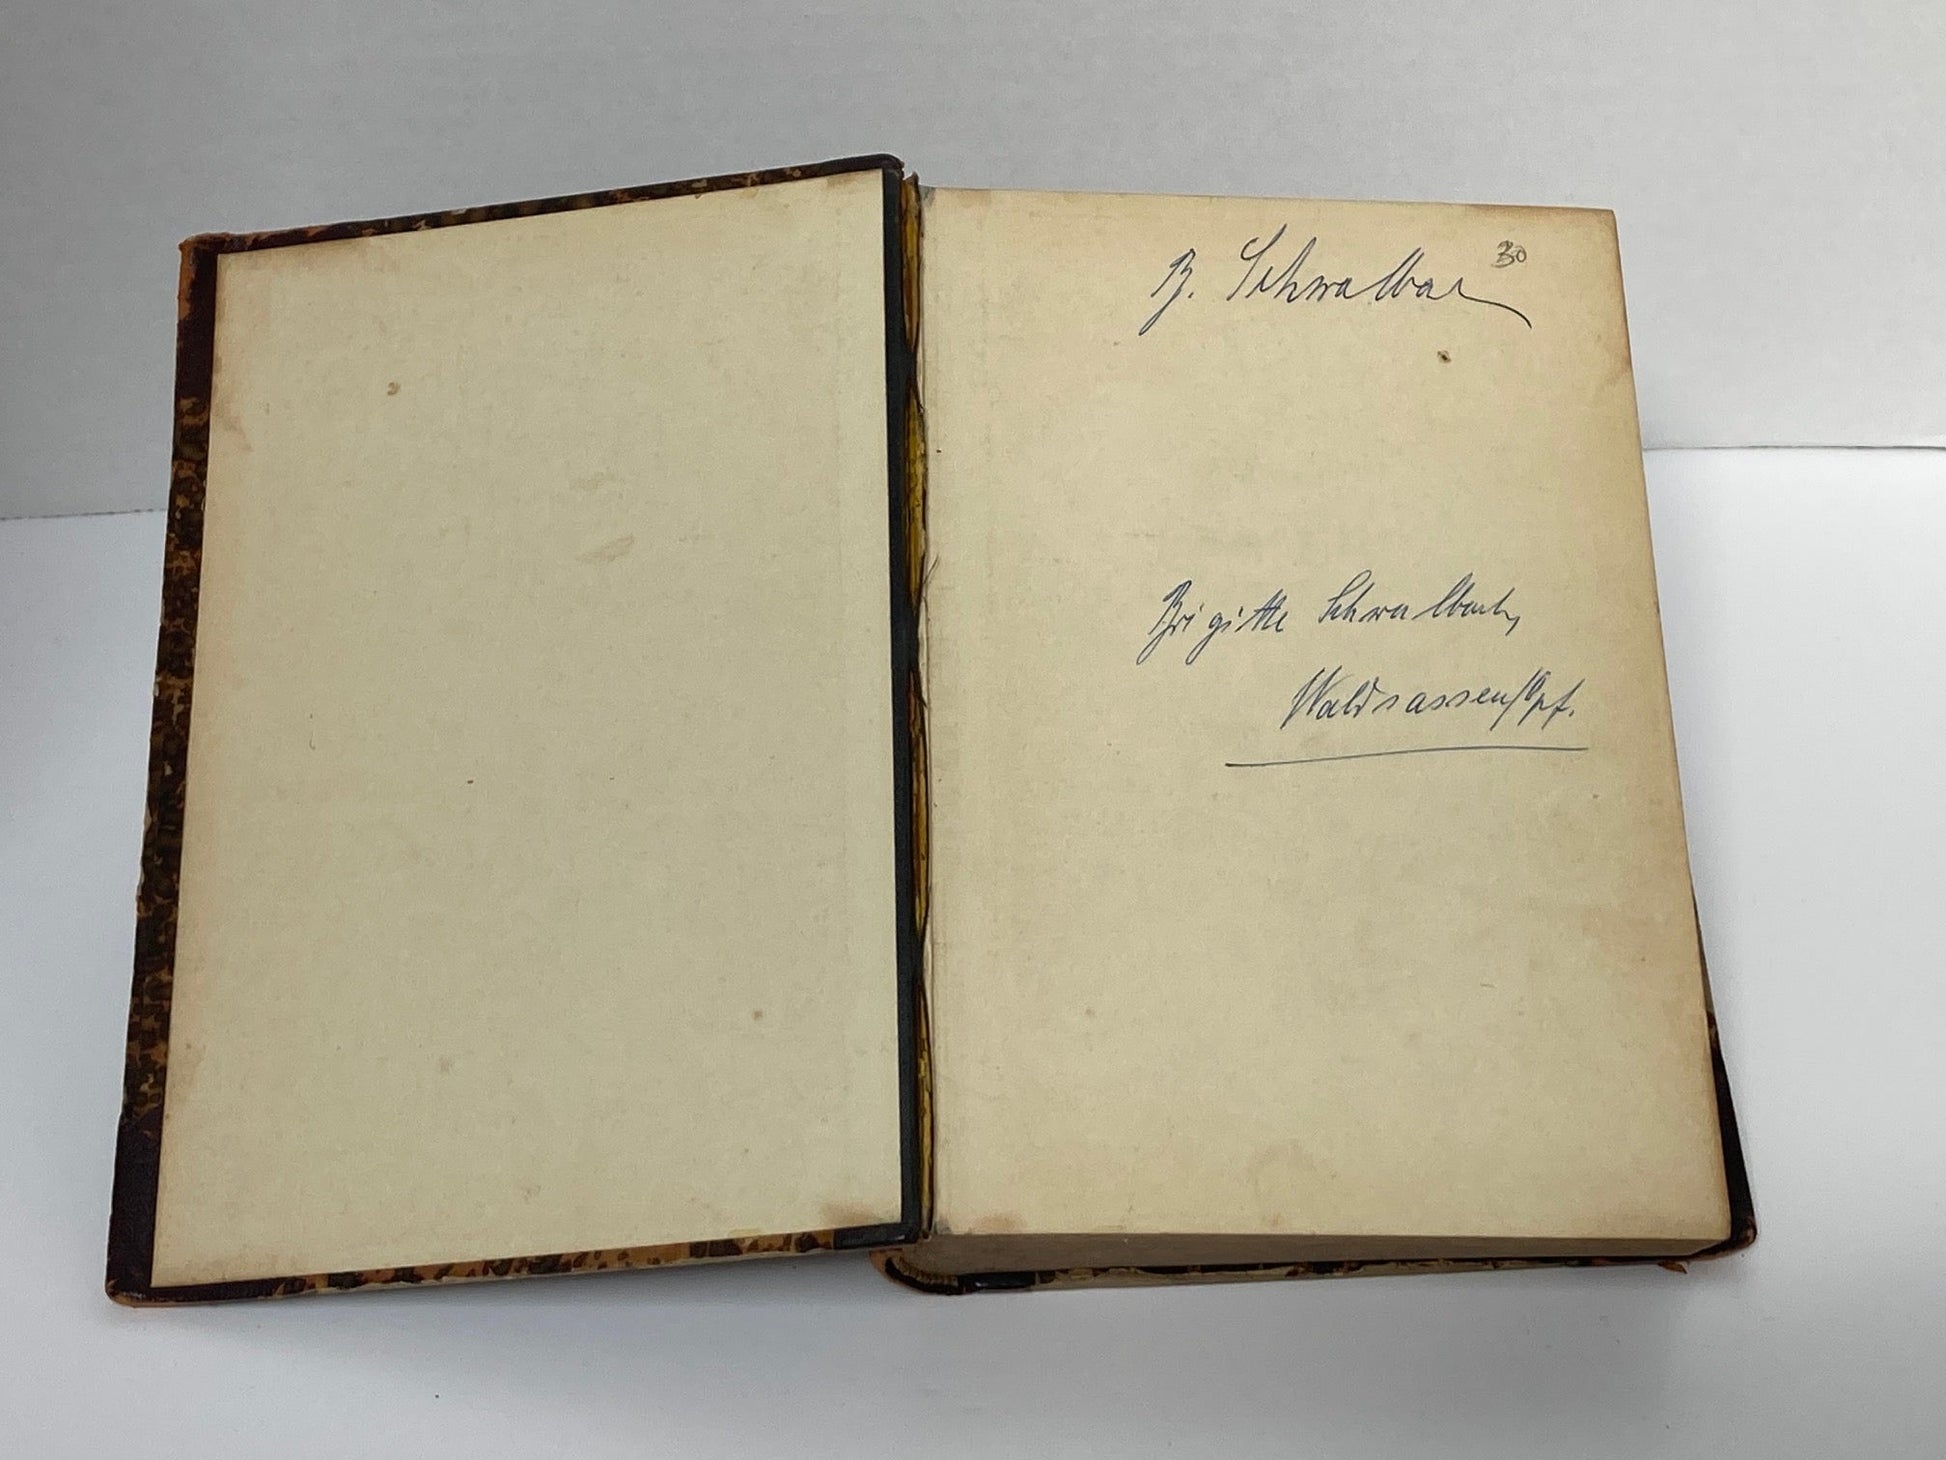 30
B. Schwalbac
Brigitte Schwalbach,
Waldsassen/Opf.